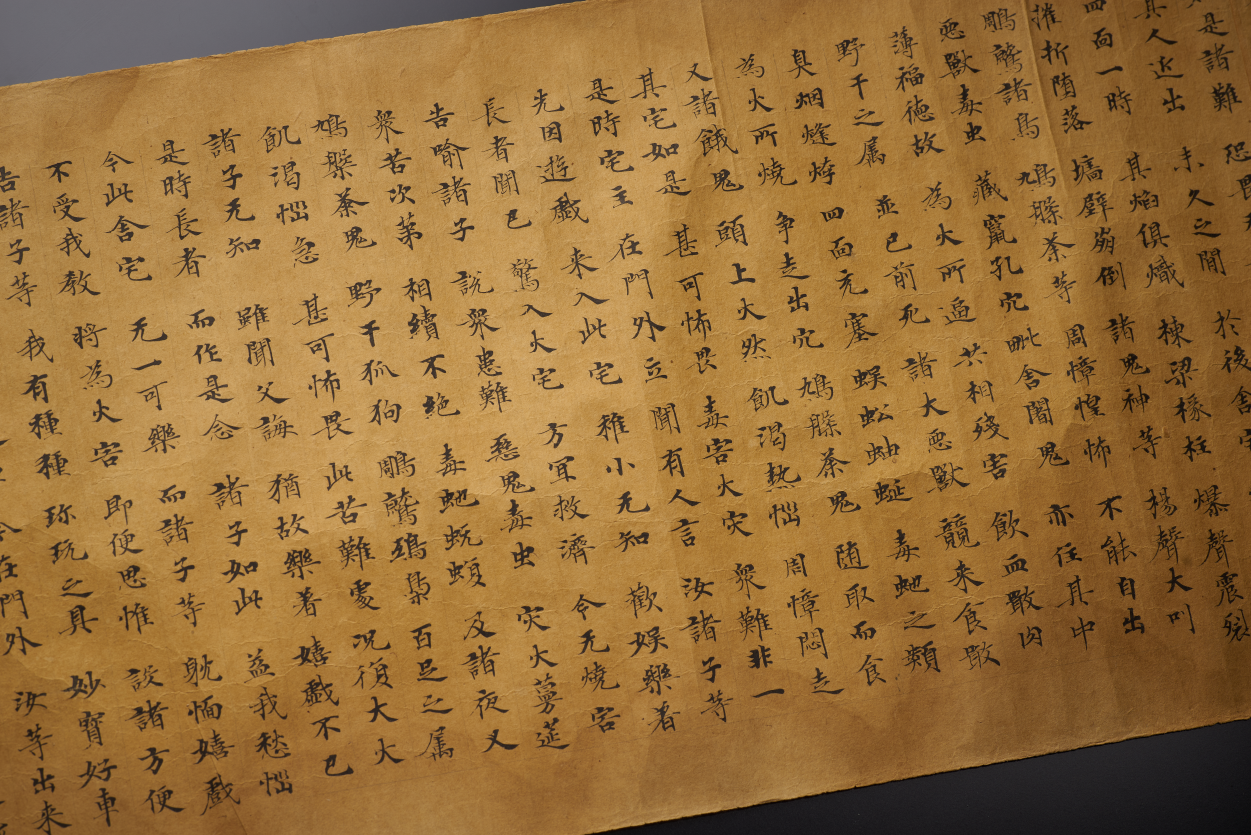 是諸難 恐畏
其人近出 未久之間 於後舍宅
四面一時 其焰俱熾 棟梁椽柱 爆聲震裂
摧折墮落 墻壁崩倒 諸鬼神等 楊聲大叫
鵰鷲諸鳥 鳩槃荼等 周慞惶怖 不能自出
惡獸毒虫 藏竄孔穴 毗舍闍鬼 亦住其中
薄福德故 為火所逼 共相殘害 飲血噉肉
野干之属 並已前死 諸大惡獸 競來食噉
臭烟熢㶿 四面充塞 蜈蚣蚰蜒 毒虵之類
為火所燒 爭走出穴 鳩槃荼鬼 随取而食
又諸餓鬼 頭上火然 飢渴熱惱 周慞悶走
其宅如是 甚可怖畏 毒害火灾 衆難非一
是時宅主 在門外立 聞有人言 汝諸子等
先因遊戲 来入此宅 稚小无知 歡娛樂著
長者聞已 驚入火宅 方宜救濟 令无燒害
告喻諸子 說衆患難 惡鬼毒虫 灾火蔓莚
衆苦次第 相續不絕 毒虵蚖蝮 及諸夜叉
鳩槃荼鬼 野干狐狗 鵰鷲鵄梟 百足之属
飢渴惱急 甚可怖畏 此苦難處 況復大火
諸子无知 雖聞父誨 猶故樂著 嬉戲不已
是時長者 而作是念 諸子如此 益我愁惱
今此舍宅 无一可樂 而諸子等 躭湎嬉戲
不受我教 將為火害 即便思惟 設諸方便
告諸子等 我有種種 珎玩之具 妙寶好車
今在門外 汝等出来